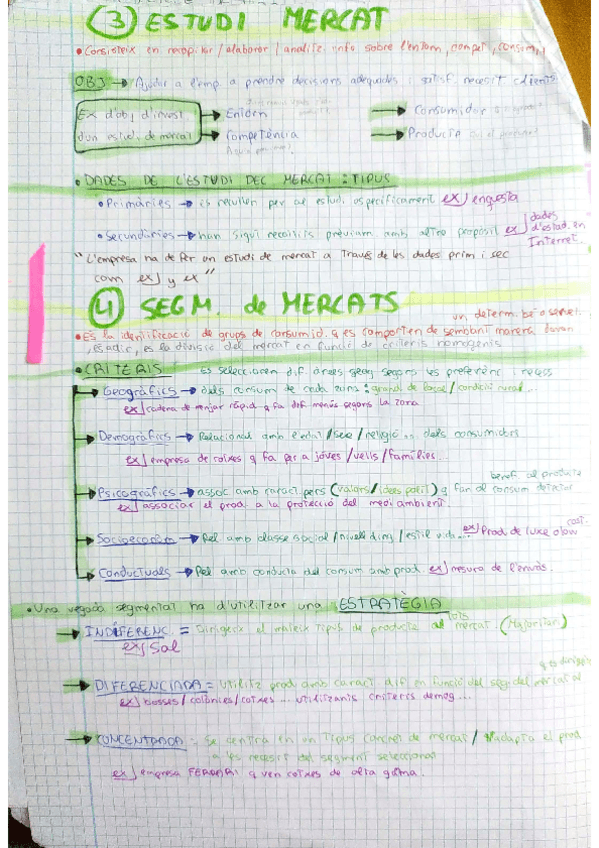 ③ ESTUDI MERCAT
• Consisteix en recopilar / elaborar / analitz. info sobre l'entorn, compet, consum,
OBJ → Ajudar a l'emp. a prendre decisions adequades i satisf. necesit clients
Ex d'obj d'invest. → Entorn → Consumidor
d'un estudi de mercat → Competència → Producte
• DADES DE L'ESTUDI DEL MERCAT : TIPUS
• Primàries → es recullen per al estudi específicament ex) enquesta
• Secundàries → han sigut recollits previam amb altre propòsit ex) dades d'estad. en Internet.
"L'empresa ha de fer un estudi de mercat a través de les dades prim i sec
com ex) y ex"
④ SEGM. de MERCATS
• És la identificació de grups de consumid. q es comporten de semblant manera davan un determ. bé o servei
, és a dir, es la divisió del mercat en funció de criteris homogenis
• CRITERIS es seleccionen dif àrees geog segons les preferènc i necess
→ Geogràfics → dels consum de cada zona : grandi de / condició rural...
ex) cadena de menjar ràpid q fa dif menús segons la zona
→ Demogràfics → Relacionat amb l'edat / sexe / religió... dels consumidors
ex) empresa de roba q fa per a jóves / vells / famílies...
→ Psicogràfics → assoc amb caract pers (valors / idees polit) q fan al consum
benef. al producte
ex) associar el prod. a la protecció del medi ambient.
→ Socioeconòm → Rel amb classe social / nivell din / estil vida... ex) Prod. de luxe o low cost.
→ Conductuals → Rel amb conducta del consum amb prod. ex) mesura de l'envàs.
• Una vegada segmentat ha d'utilitzar una ESTRATÈGIA
→ INDIFERENC. = Dirigeix el mateix tipus de producte al mercat (Majoritari)
tots
ex) Sal
→ DIFERENCIADA = Utilitz prod amb caract dif en funció del seg del mercat al
q es dirigeix
ex) bosses / colònies / cotxes ... utilitzants criteris demog...
→ CONCENTRADA : Se centra en un tipus concret de mercat / adapta el prod
a les necesit del segment seleccionat
ex) empresa FERRARI q ven cotxes de alta gama.